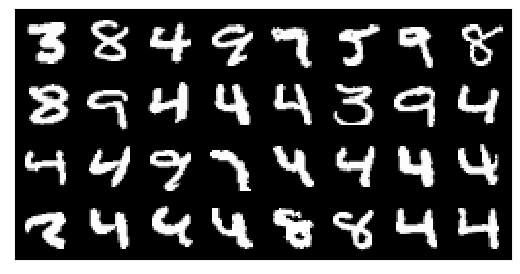 3 8 4 9 7 5 9 8
8 9 4 4 4 3 9 4
4 4 9 7 4 4 4 4
2 4 4 4 8 8 4 4